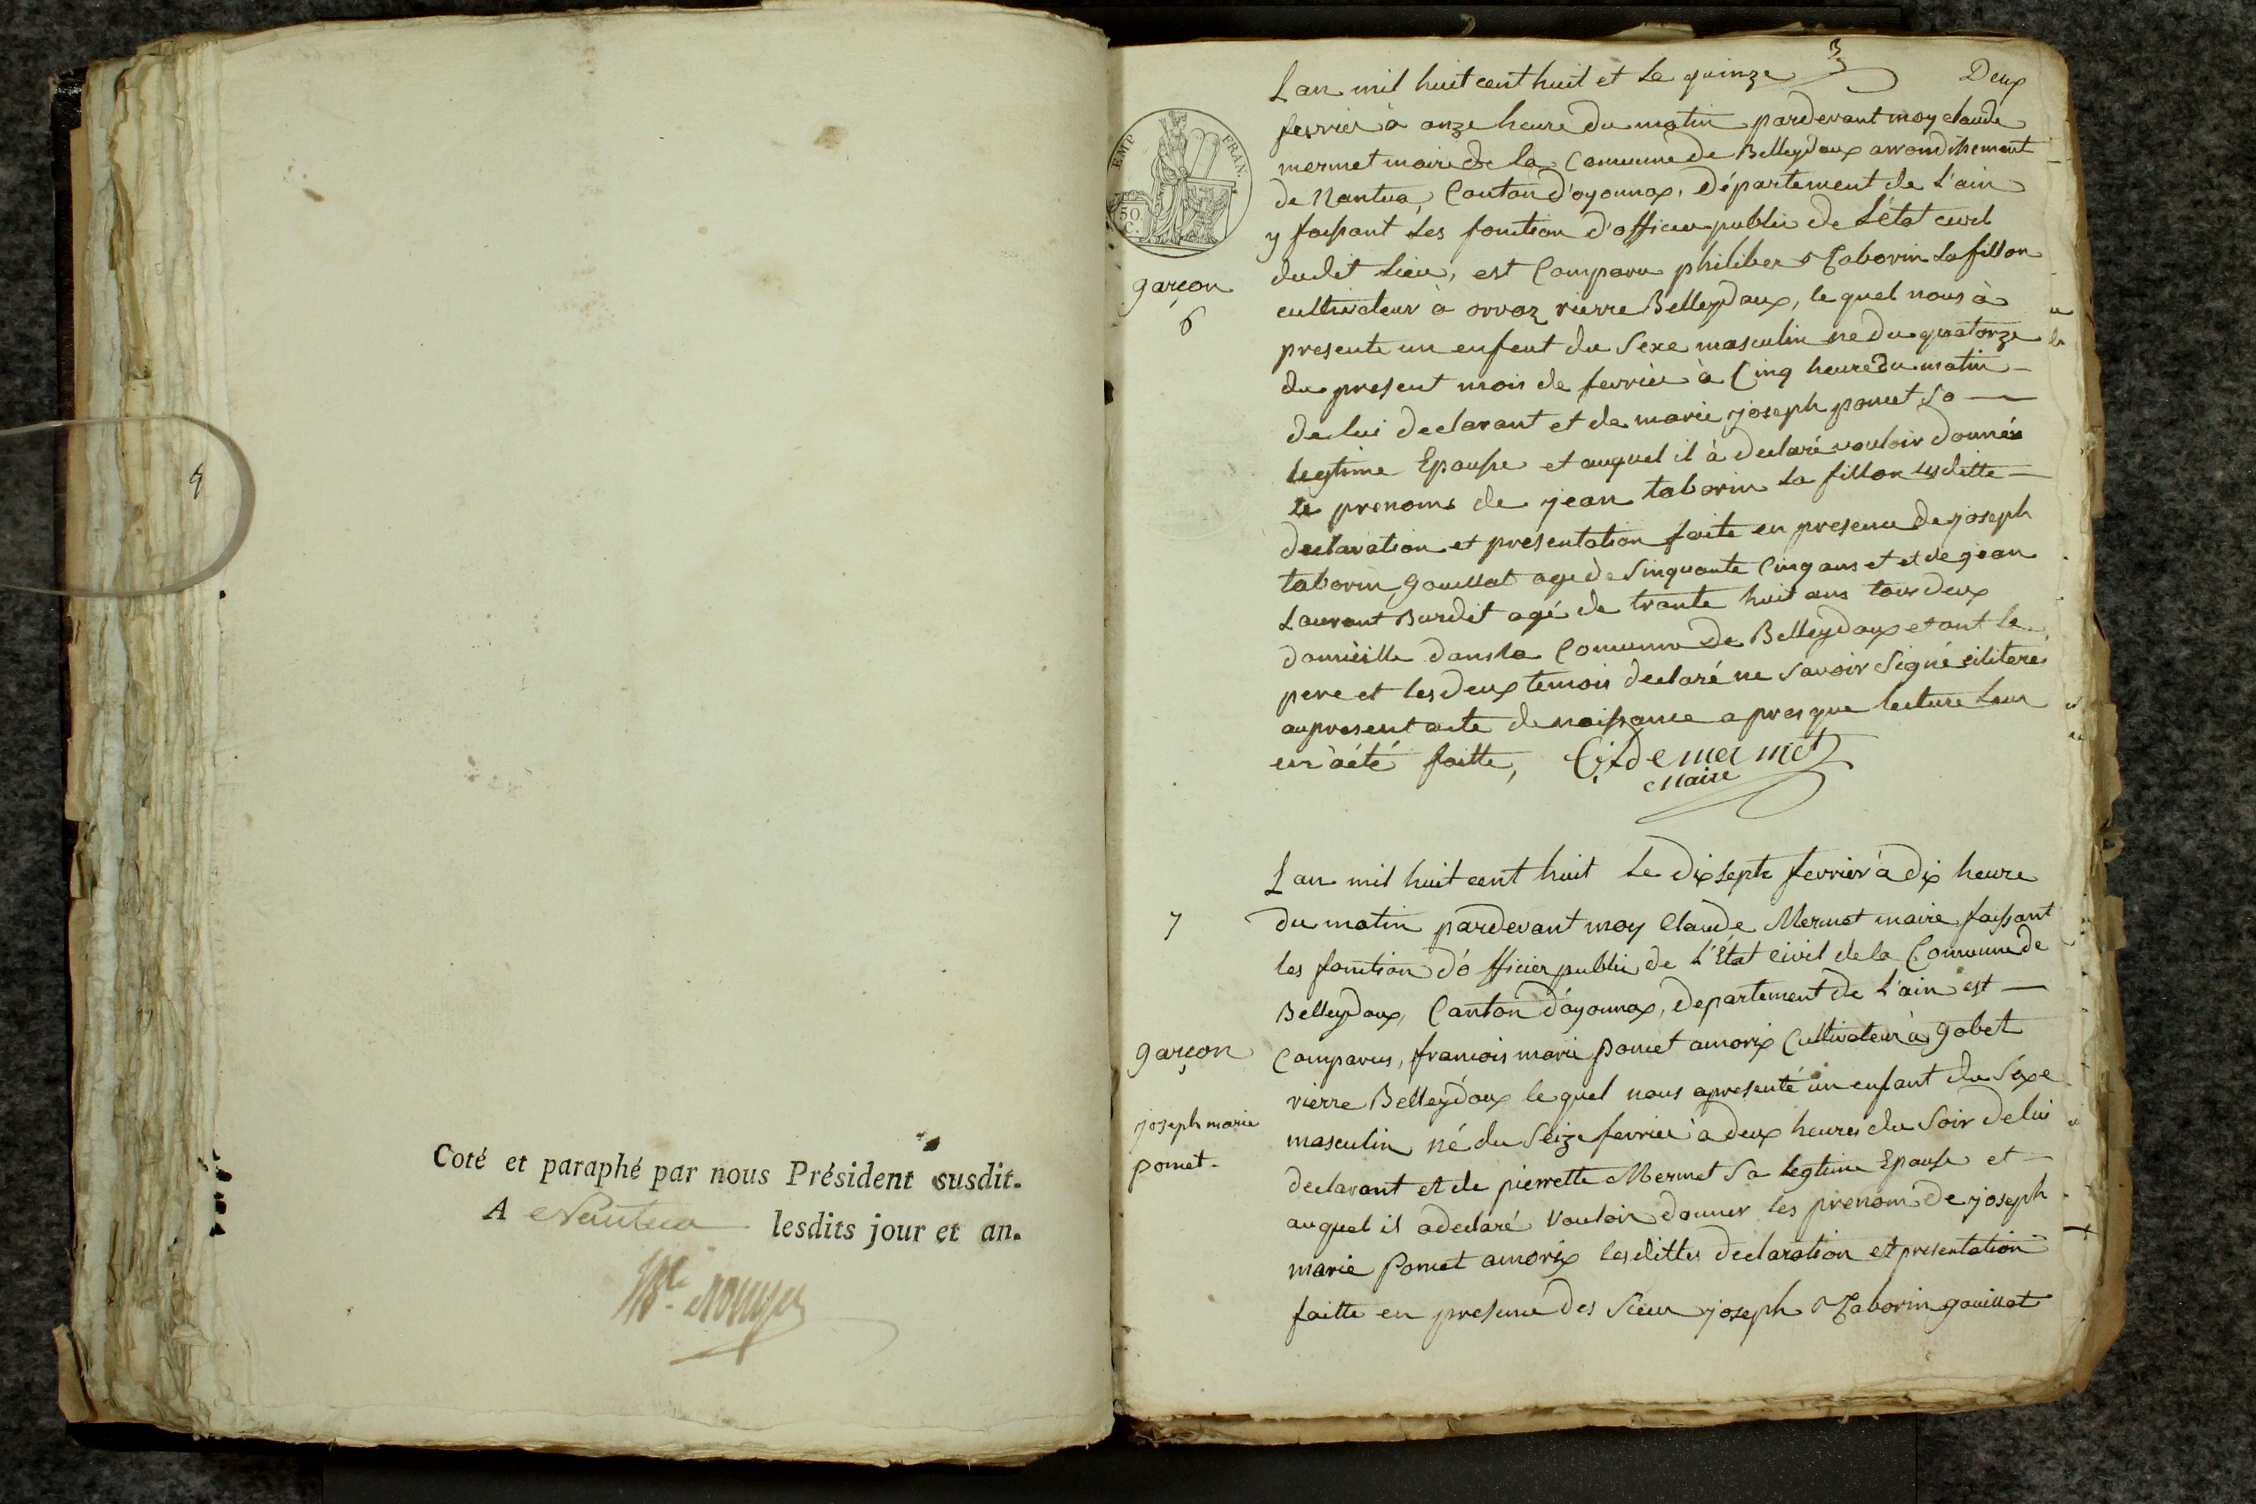 Coté et paraphé par nous Président susdit.
A Nantua lesdits jour et an.
Deux
EMP. FRAN.
50 C.
Lan mil huit cent huit et Le quinze
fevrier à onze heure du matin pardevant moy claude
mermet maire de la Commune de Belleydoux arrondihement
de Nantua, Canton d'oyonnax, Département de l'ain
y faisant les fonction d'officier public de L'état civil
dudit Lieu, est Comparu philiber Taborin Lafillon
garçon
6
cultivateur à orvaz rierre Belleydoux, le quel nous à
presente un enfent du Sexe masculin né du quatorze
du present mois de fevrier à Cinq heure du matin
de lui declarant et de marie joseph pomet Sa
legtime Epouse et auquel il à declaré vouloir donnér
le prenoms de jean taborin La fillon lesditte
declaration et presentation faite en presence de joseph
taborin gouillat age de Sinquante Cinq ans et et de jean
Laurant Burdet agé de trante huit ans tous deux
domicille dans la Commune de Belleydoux et ont le
pere et les deux temois declaré ne savoir Signé
au present acte de naissance apres que lecture Leur
en à été faitte,
Cde mermet
maire
Lan mil huit cent huit Le dix Septe fevrier à dix heure
7
du matin pardevant moy Claude Mermet maire faissant
les fonction d'officier public de L'État Civil de la Commune de
Belleydoux, Canton d'oyonnax, departement de L'ain est
garçon
Comparus, francois marie pomet amorix Cultivateur à gobet
rierre Belleydoux le quel nous apresenté un enfant du Sexe
joseph marie
pomet.
masculin né du Seize fevrier à deux heures du Soir de lui
declarant et de pierrette Mermet Sa legtime Epouse et
auquel il a declaré Vouloir donner les prenom de joseph
marie Pomet amorix lesdittes declaration et presentation
faitte en presence des Sieur joseph Taborin gouillat